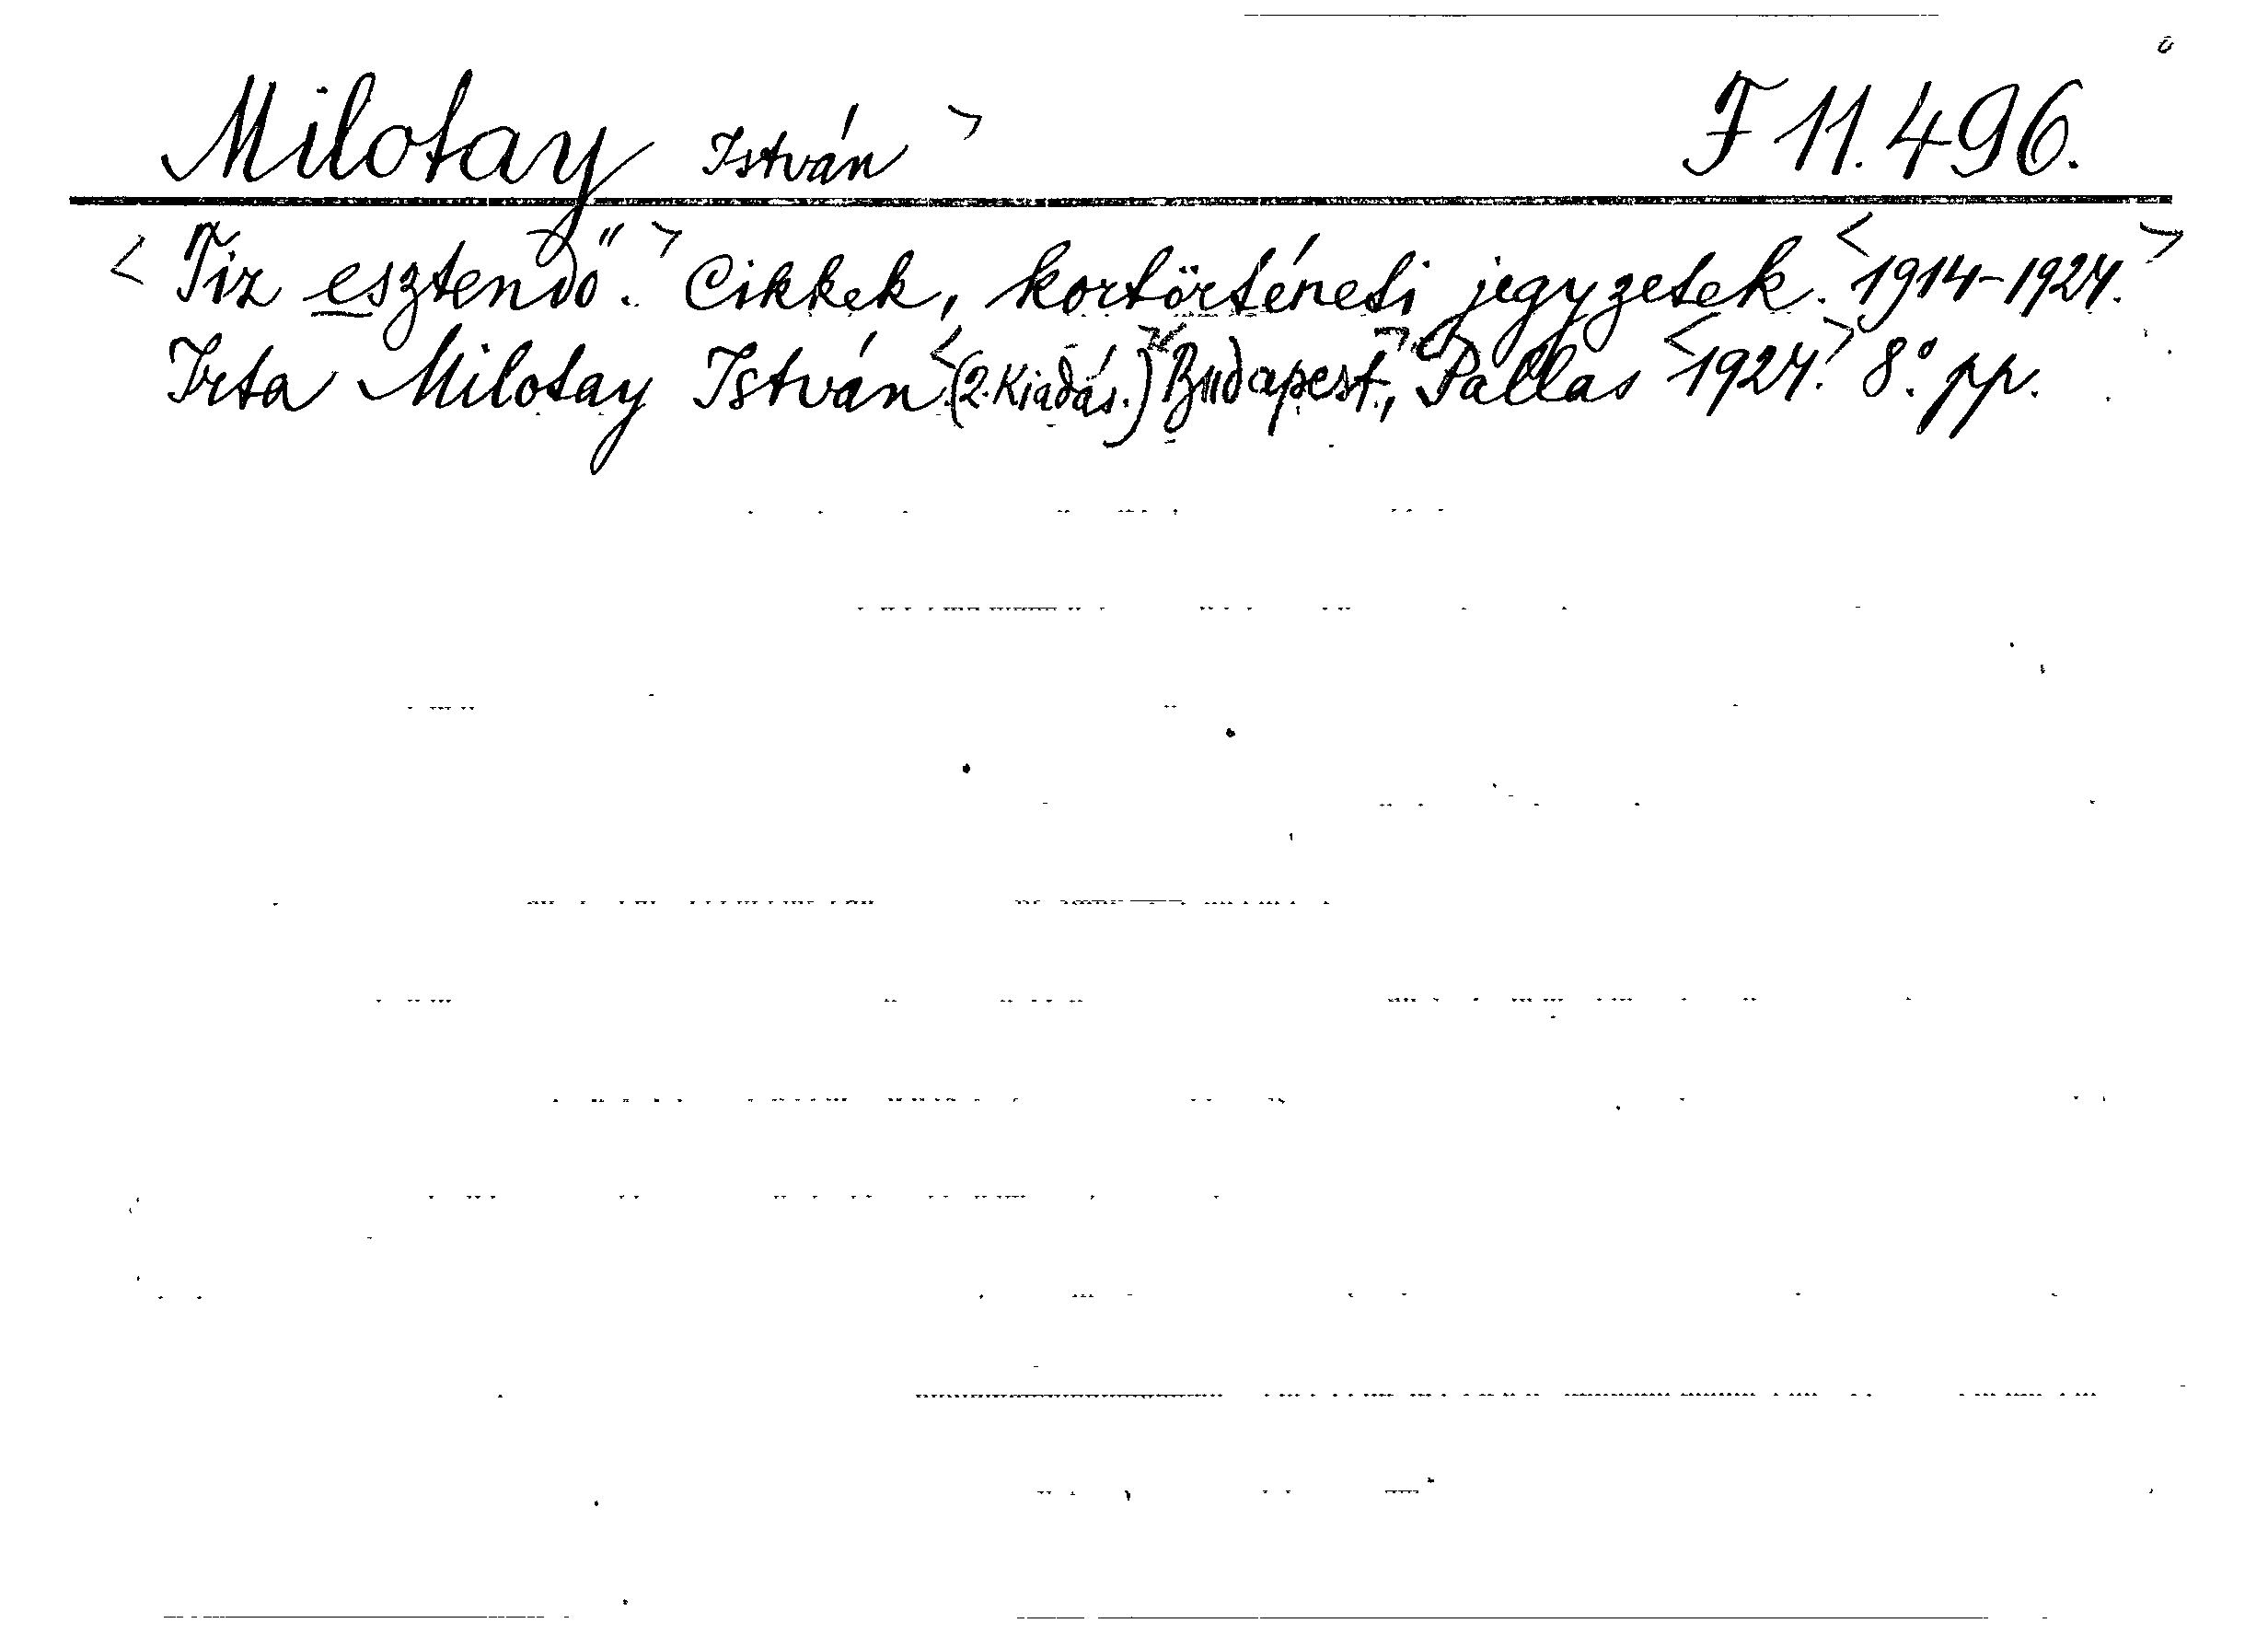 Milotay István> F 11.496.
<Tiz esztendő.> Cikkek, kortörténeti jegyzetek. <1914-1924.>
Irta Milotay István. <(2. Kiadás.)> <Budapest.,> Pallas <1924.> 8.° pp.